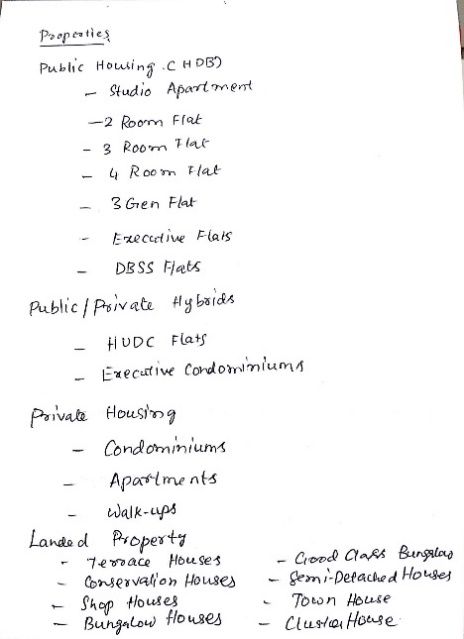 Properties
Public Housing (HDB)
- Studio Apartment
- 2 Room Flat
- 3 Room Flat
- 4 Room Flat
- 3 Gen Flat
- Executive Flats
- DBSS Flats
Public / Private Hybrids
- HUDC Flats
- Executive Condominiums
Private Housing
- Condominiums
- Apartments
- Walk-ups
Landed Property
- Terrace Houses
- Conservation Houses
- Shop Houses
- Bungalow Houses
- Good Class Bungalow
- Semi-Detached Houses
- Town House
- Cluster House